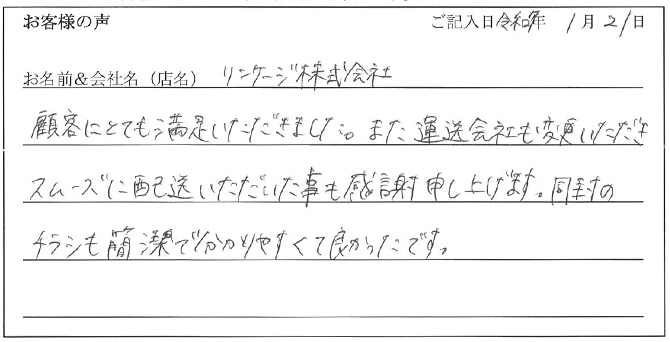 お客様の声 ご記入日 令和 年 1月21日
お名前&会社名（店名） リンケージ株式会社
顧客にとても満足いただきました。また運送会社も変更いただき
スムーズに配送いただいた事も感謝申し上げます。同封の
チラシも簡潔で分かりやすくて良かったです。